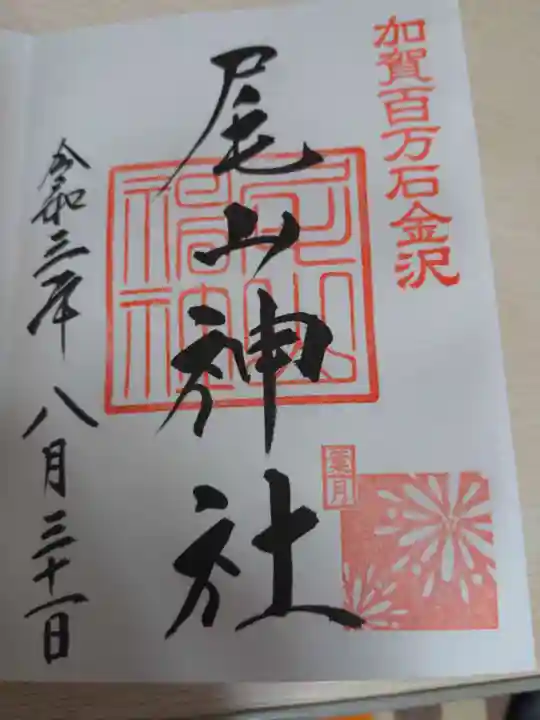 加賀百万石金沢
尾山神社
葉月
令和三年八月三十一日